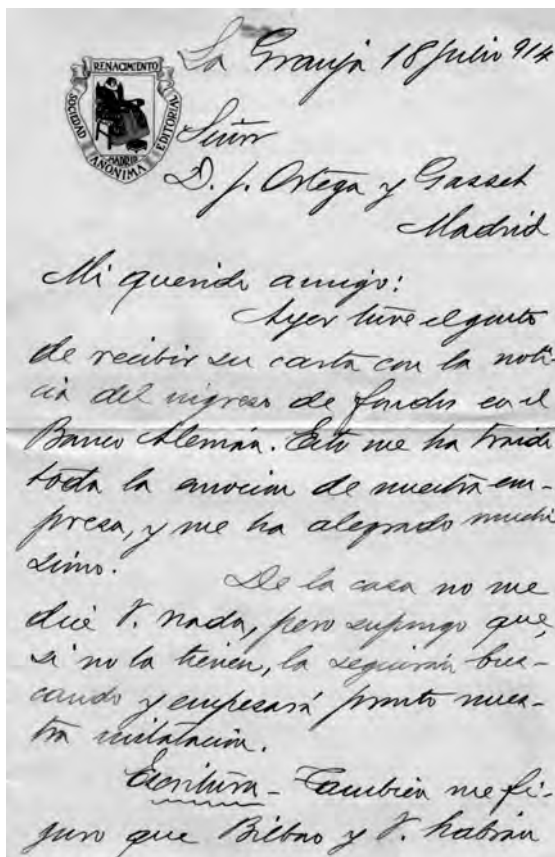 La Granja 18 julio 914
RENACIMIENTO
SOCIEDAD
EDITORIAL
MADRID
ANÓNIMA
Señor
D. J. Ortega y Gasset
Madrid
Mi querido amigo:
Ayer tuve el gusto
de recibir su carta con la noti-
cia del ingreso de fondos en el
Banco Alemán. Esto me ha traido
toda la emoción de nuestra em-
presa, y me ha alegrado muchi
simo.
De la casa no me
dice V. nada, pero supongo que,
si no la tienen, la seguirán bus-
cando y empezará pronto nues-
tra instalación.
Escritura - También me fi-
guro que Bilbao y V. habrán